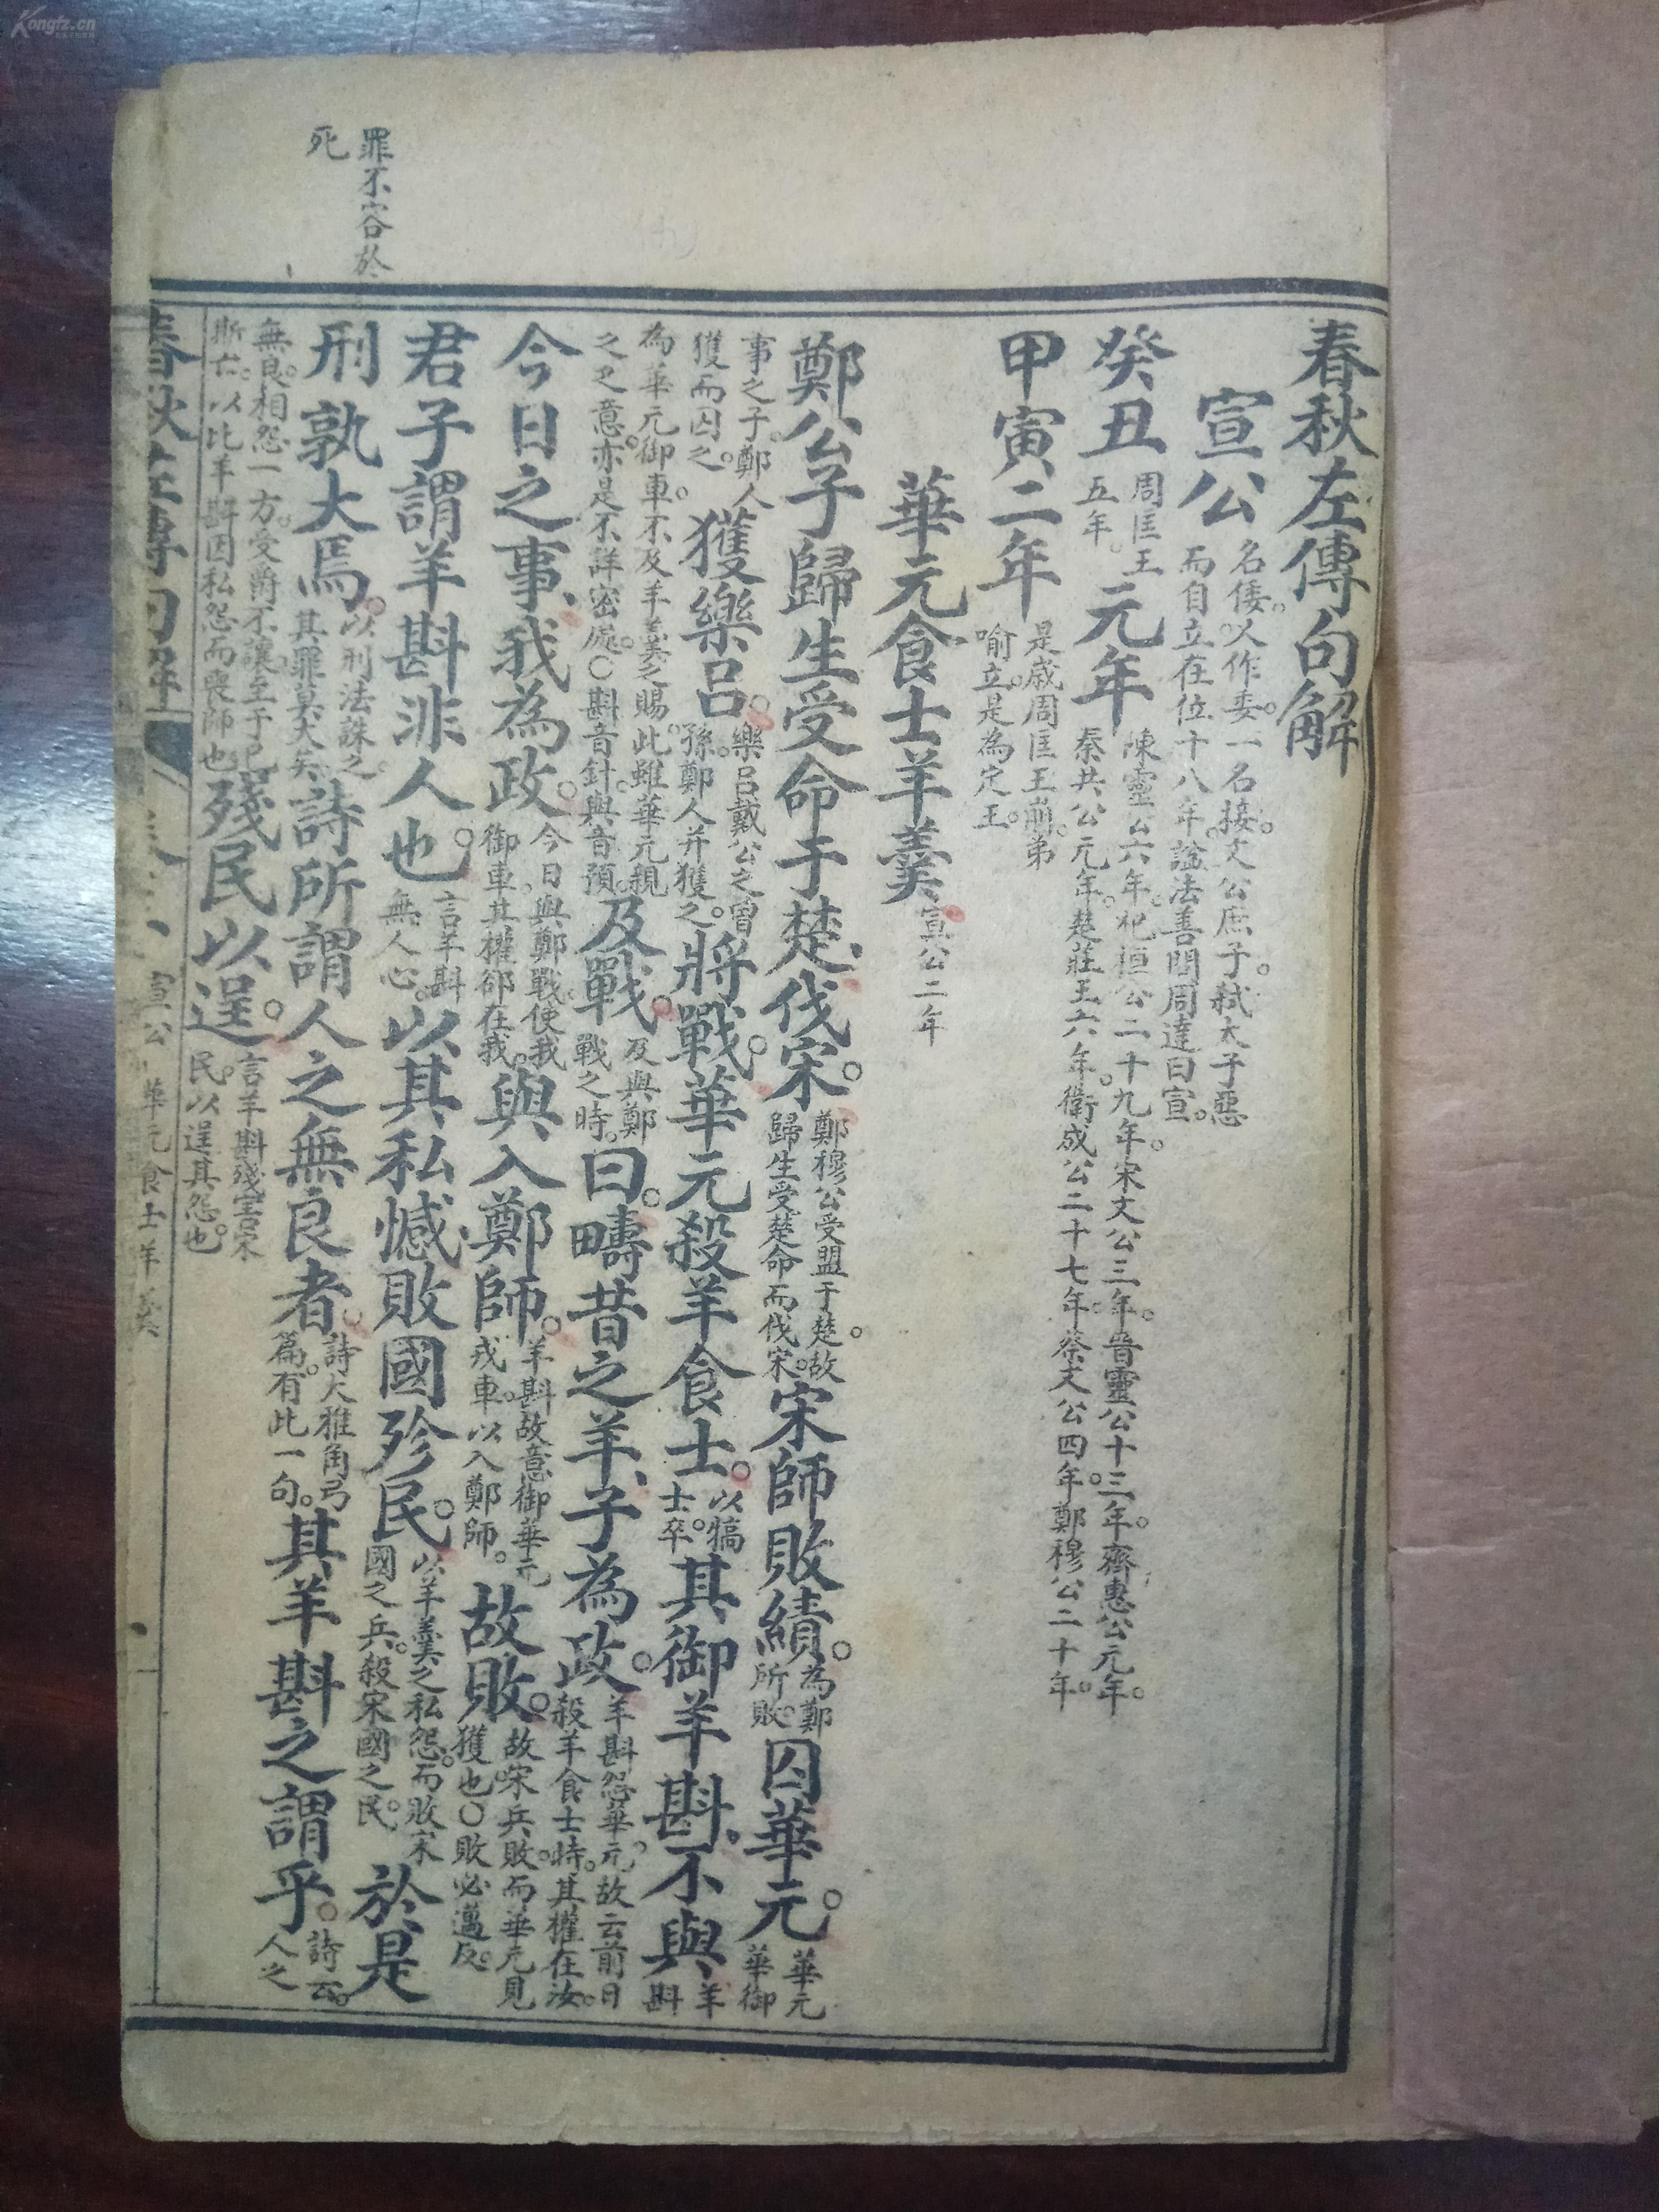 Kongfz.cn
罪不容於
死
春秋左傳句解
宣公 名倭。又作委。一名接。文公庶子。弒太子惡而自立在位十八年。諡法善問周達曰宣。
癸丑 周匡王五年。 元年 陳靈公六年。杞桓公二十九年。宋文公三年。晉靈公十三年。齊惠公元年。秦共公元年。楚莊王六年。衛成公二十七年。蔡文公四年。鄭穆公二十年。
甲寅二年 是歲周匡王崩。弟喻立。是為定王。
華元食士羊羹 宣公二年
鄭公子歸生受命于楚、伐宋。鄭穆公受盟于楚。故歸生受楚命而伐宋。宋師敗績。為鄭所敗。囚華元。華元華御
事之子。鄭人獲而囚之。獲樂呂。樂呂戴公之曾孫。鄭人并獲之。將戰。華元殺羊食士。以犒士卒。其御羊斟、不與 羊斟
為華元御車。不及羊羹之賜。此雖華元親之之意。亦是不詳密處。○斟音針。與音預。及戰。及與鄭戰之時。曰。疇昔之羊、子為政。羊斟怨華元。故云前日殺羊食士時。其權在汝。
今日之事、我為政。今日與鄭戰。使我御車。其權卻在我。與入鄭師。羊斟故意御華元戎車。以入鄭師。故敗。故宋兵敗。而華元見獲也○敗必邁反。
君子謂羊斟非人也。言羊斟無人心。以其私憾、敗國殄民。以羊羹之私怨。而敗宋國之兵。殺宋國之民。於是
刑孰大焉。以刑法誅之。其罪莫大矣。詩所謂人之無良者。詩大雅角弓篇。有此一句。其羊斟之謂乎。詩云。人之
無良。相怨一方。受爵不讓。至于己斯亡。以比羊斟因私怨而喪師也 殘民以逞。言羊斟殘害宋民。以逞其怨也。
春秋左傳句解 宣公 華元食士羊羹 一